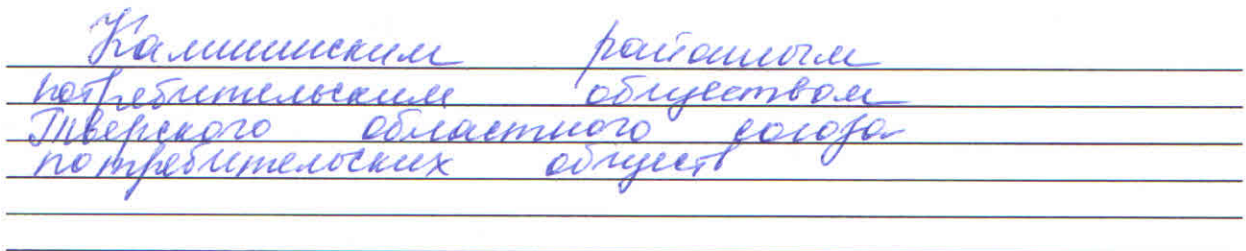 Калининским районным
потребительским обществом
Тверского областного союза
потребительских обществ